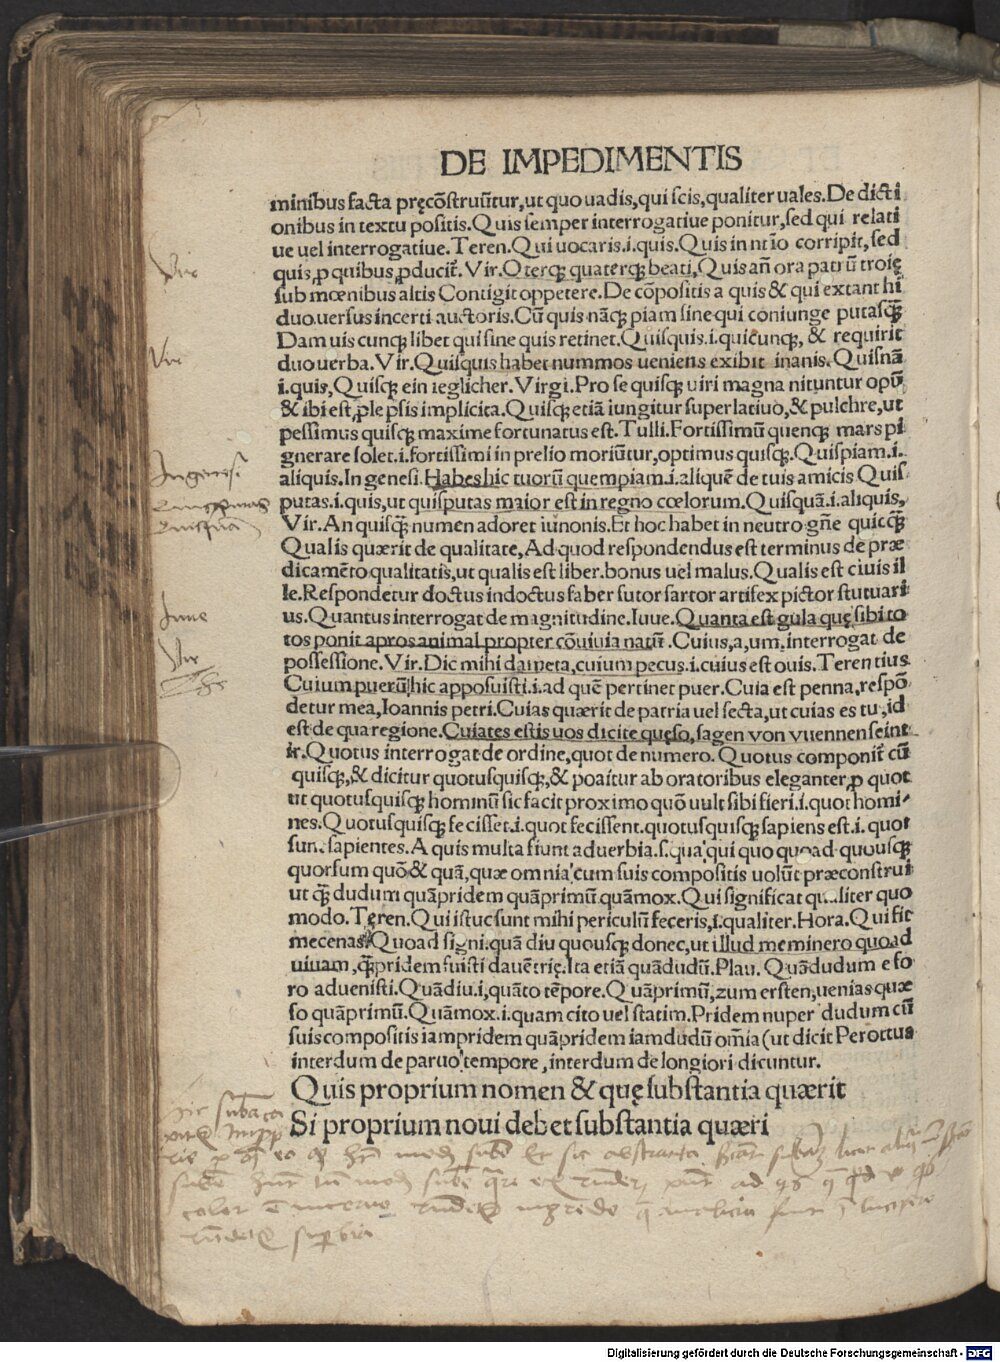 DE IMPEDIMENTIS
minibus facta pręcõstruũtur,ut quo uadis,qui scis,qualiter uales.De dicti
onibus in textu positis.Quis semper interrogatiue ponitur,sed qui relati
ue uel interrogatiue.Teren.Qui uocaris.i.quis.Quis in ntĩo corripit,sed
quis,ꝓ quibus,ꝓducit̃.Vir.O terqꝫ quaterqꝫ beati,Quis añ ora patrũ troię
sub mœnibus altis Contigit oppetere.De cõpositis a quis & qui extant hi
duo uersus incerti auctoris.Cũ quis nãqꝫ piam sine qui coniunge putasqꝫ̃
Dam uis cunqꝫ libet qui sine quis retinet.Quisquis.i.quicunqꝫ, & requirit
duo uerba.Vir.Quisquis habet nummos ueniens exibit inanis.Quisnã
i.quis,Quisqꝫ ein ieglicher.Virgi.Pro se quisqꝫ uiri magna nituntur opũ
& ibi est,ꝓle p̃sis implicita.Quisqꝫ etiã iungitur superlatiuo,& pulchre,ut
pessimus quisqꝫ maxime fortunatus est.Tulli.Fortissimũ quenqꝫ mars pi
gnerare solet.i.fortissimi in prelio moriũtur,optimus quisqꝫ.Quispiam.i.
aliquis.In genesi.Habes hic tuorũ quempiam.i.aliquẽ de tuis amicis Quis
putas.i.quis,ut quisputas maior est in regno cœlorum.Quisquã.i.aliquis,
Vir.An quisqꝫ̃ numen adoret iunonis.Et hoc habet in neutro gñe quicqꝫ̃
Qualis quærit de qualitate,Ad quod respondendus est terminus de præ
dicamẽto qualitatis,ut qualis est liber.bonus uel malus.Qualis est ciuis il
le.Respondetur doctus indoctus faber sutor sartor artifex pictor stutuari
us.Quantus interrogat de magnitudine.Iuue.Quanta est gula quę sibi to
tos ponit apros animal propter cõuiuia natũ.Cuius,a,um,interrogat de
possessione.Vir.Dic mihi dameta,cuium pecus.i.cuius est ouis.Terentius
Cuium puerũ hic apposuisti.i.ad quẽ pertinet puer.Cuia est penna,respõ
detur mea,Ioannis petri.Cuias quærit de patria uel secta,ut cuias es tu,id
est de qua regione.Cuiates estis uos dicite quęso,sagen von vuennen seint
ir.Quotus interrogat de ordine,quot de numero.Quotus componit̃ cũ
quisqꝫ,& dicitur quotusquisqꝫ,& poaitur ab oratoribus eleganter,ꝓ quot
ut quotusquisqꝫ hominũ sic facit proximo quõ uult sibi fieri.i.quot homi
nes.Quotusquisqꝫ fecisset.i.quot fecissent.quotusquisqꝫ sapiens est.i. quot
sunt sapientes.A quis multa fiunt aduerbia.s.qua qui quo quoad quousqꝫ
quorsum quõ & quã,quæ omnia cum suis compositis uolũt præconstrui
ut qꝫ̃ dudum quãpridem quãprimũ quãmox.Qui significat qualiter quo
modo.Teren.Qui istuc sunt mihi periculũ feceris,i.qualiter.Hora.Qui fit
mecenas.Quoad signi.quã diu quousqꝫ donec,ut illud meminero quoad
uiuam,qꝫ̃pridem fuisti dauẽtrię.Ita etiã quãdudũ.Plau. Quãdudum e fo
ro aduenisti.Quãdiu.i,quãto tẽpore.Quãprimũ,zum ersten,uenias quæ
so quãprimũ.Quãmox.i.quam cito uel statim.Pridem nuper dudum cũ
suis compositis iampridem quãpridem iamdudũ om̃ia (ut dicit Perottus
interdum de paruo tempore, interdum de longiori dicuntur.
Quis proprium nomen & quę substantia quærit
Si proprium noui debet substantia quæri
Vir
Vir
In genesi
Quisputas
Quisquã
Iuue
Vir